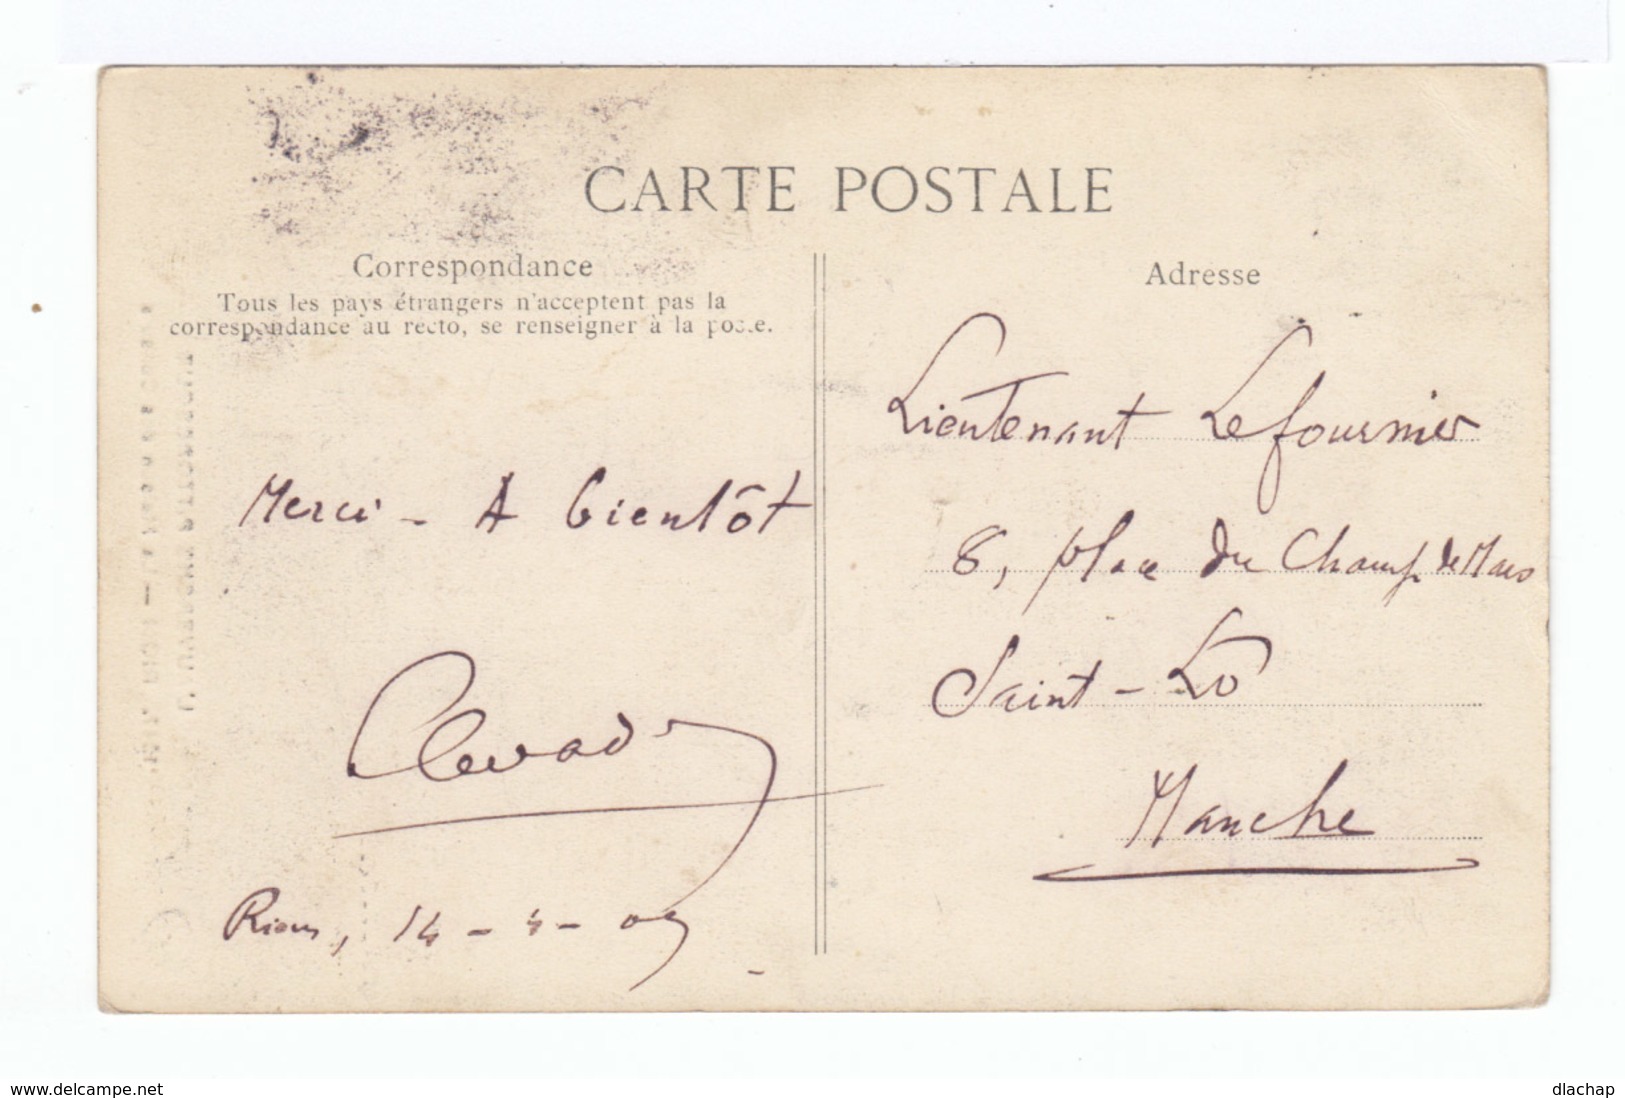 CARTE POSTALE
Correspondance
Tous les pays étrangers n'acceptent pas la
correspondance au recto, se renseigner à la poste.
Merci - A bientôt
Riom, 14-4-09
Adresse
Lieutenant Lefournier
8, place du Champ de Mars
Saint-Lô
Manche
www.delcampe.net
dlachap